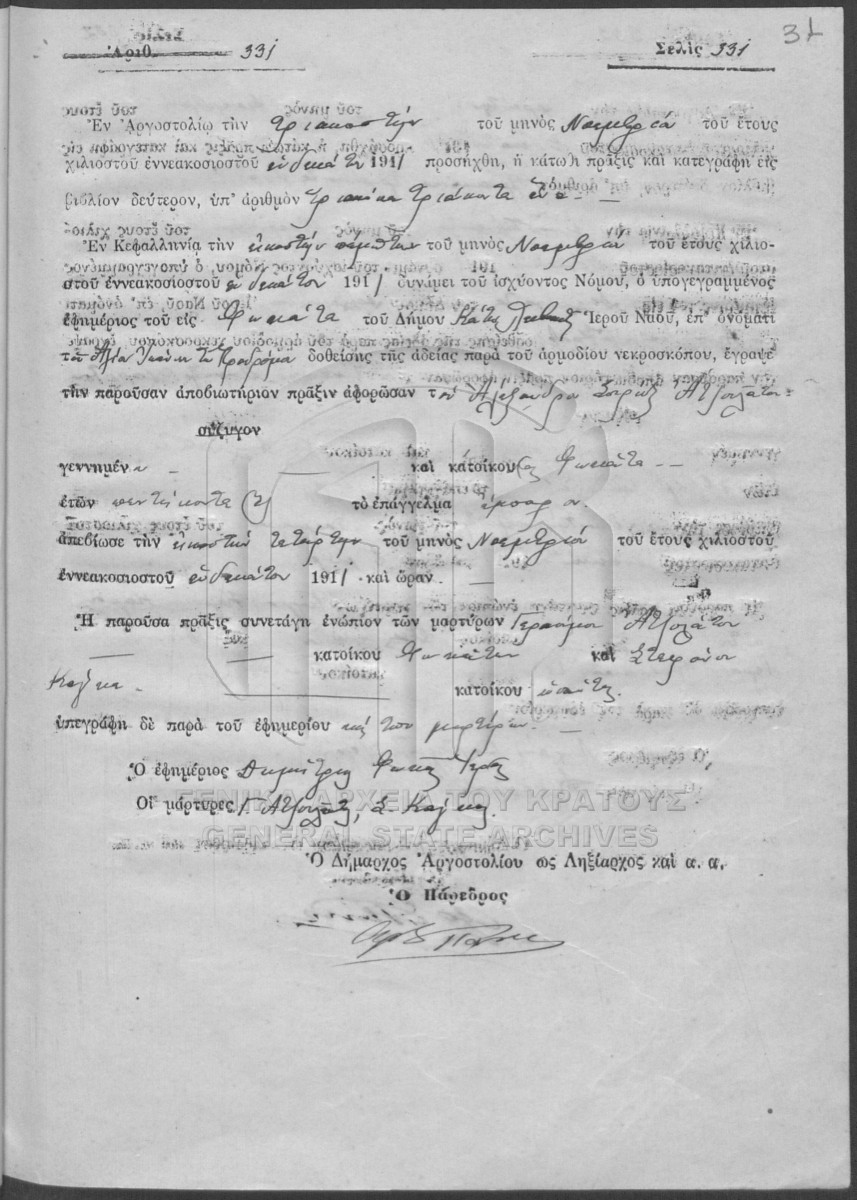 Ἀριθ. 331 Σελὶς 331
31
Ἐν Ἀργοστολίῳ τὴν τριακοστὴν τοῦ μηνὸς Νοεμβρίου τοῦ ἔτους
χιλιοστοῦ ἐννεακοσιοστοῦ ἑνδεκάτου 1911 προσήχθη, ἡ κάτωθι πρᾶξις καὶ κατεγράφη εἰς
βιβλίον δεύτερον, ὑπ' ἀριθμὸν τριακόσια τριάκοντα ἕνα
Ἐν Κεφαλληνίᾳ τὴν εἰκοστὴν πέμπτην τοῦ μηνὸς Νοεμβρίου τοῦ ἔτους χιλιο-
στοῦ ἐννεακοσιοστοῦ ἑνδεκάτου 1911 δυνάμει τοῦ ἰσχύοντος Νόμου, ὁ ὑπογεγραμμένος
ἐφημέριος τοῦ εἰς Φωκάτα τοῦ Δήμου Ἱεροῦ Ναοῦ, ἐπ' ὀνόματι
τοῦ Ἁγίου Ἰωάννου τοῦ Προδρόμου δοθείσης τῆς ἀδείας παρὰ τοῦ ἁρμοδίου νεκροσκόπου, ἔγραψε
τὴν παροῦσαν ἀποβιωτήριον πρᾶξιν ἀφορῶσαν τοῦ Ἀλεξάνδρου Ἀτζουλάτου
σύζυγον
γεννημέν καὶ κάτοικου Φωκάτα
ἐτῶν πεντήκοντα τὸ ἐπάγγελμα ἔμπορον
ἀπεβίωσε τὴν εἰκοστὴν τετάρτην τοῦ μηνὸς Νοεμβρίου τοῦ ἔτους χιλιοστοῦ
ἐννεακοσιοστοῦ ἑνδεκάτου 1911 καὶ ὥραν
Ἡ παροῦσα πρᾶξις συνετάγη ἐνώπιον τῶν μαρτύρων Γερασίμου Ἀτζουλάτου
κατοίκου Φωκάτων καὶ Στεφάνου
κατοίκου
ὑπεγράφη δὲ παρὰ τοῦ ἐφημερίου καὶ τῶν μαρτύρων
Ὁ ἐφημέριος Δημήτριος Φωκᾶς Ἱερεύς
Οἱ μάρτυρες Γ. Ἀτζουλάτος, Σ.
ΓΕΝΙΚΑ ΑΡΧΕΙΑ ΤΟΥ ΚΡΑΤΟΥΣ
GENERAL STATE ARCHIVES
Ὁ Δήμαρχος Ἀργοστολίου ὡς Ληξίαρχος καὶ α. α.
Ὁ Πάρεδρος